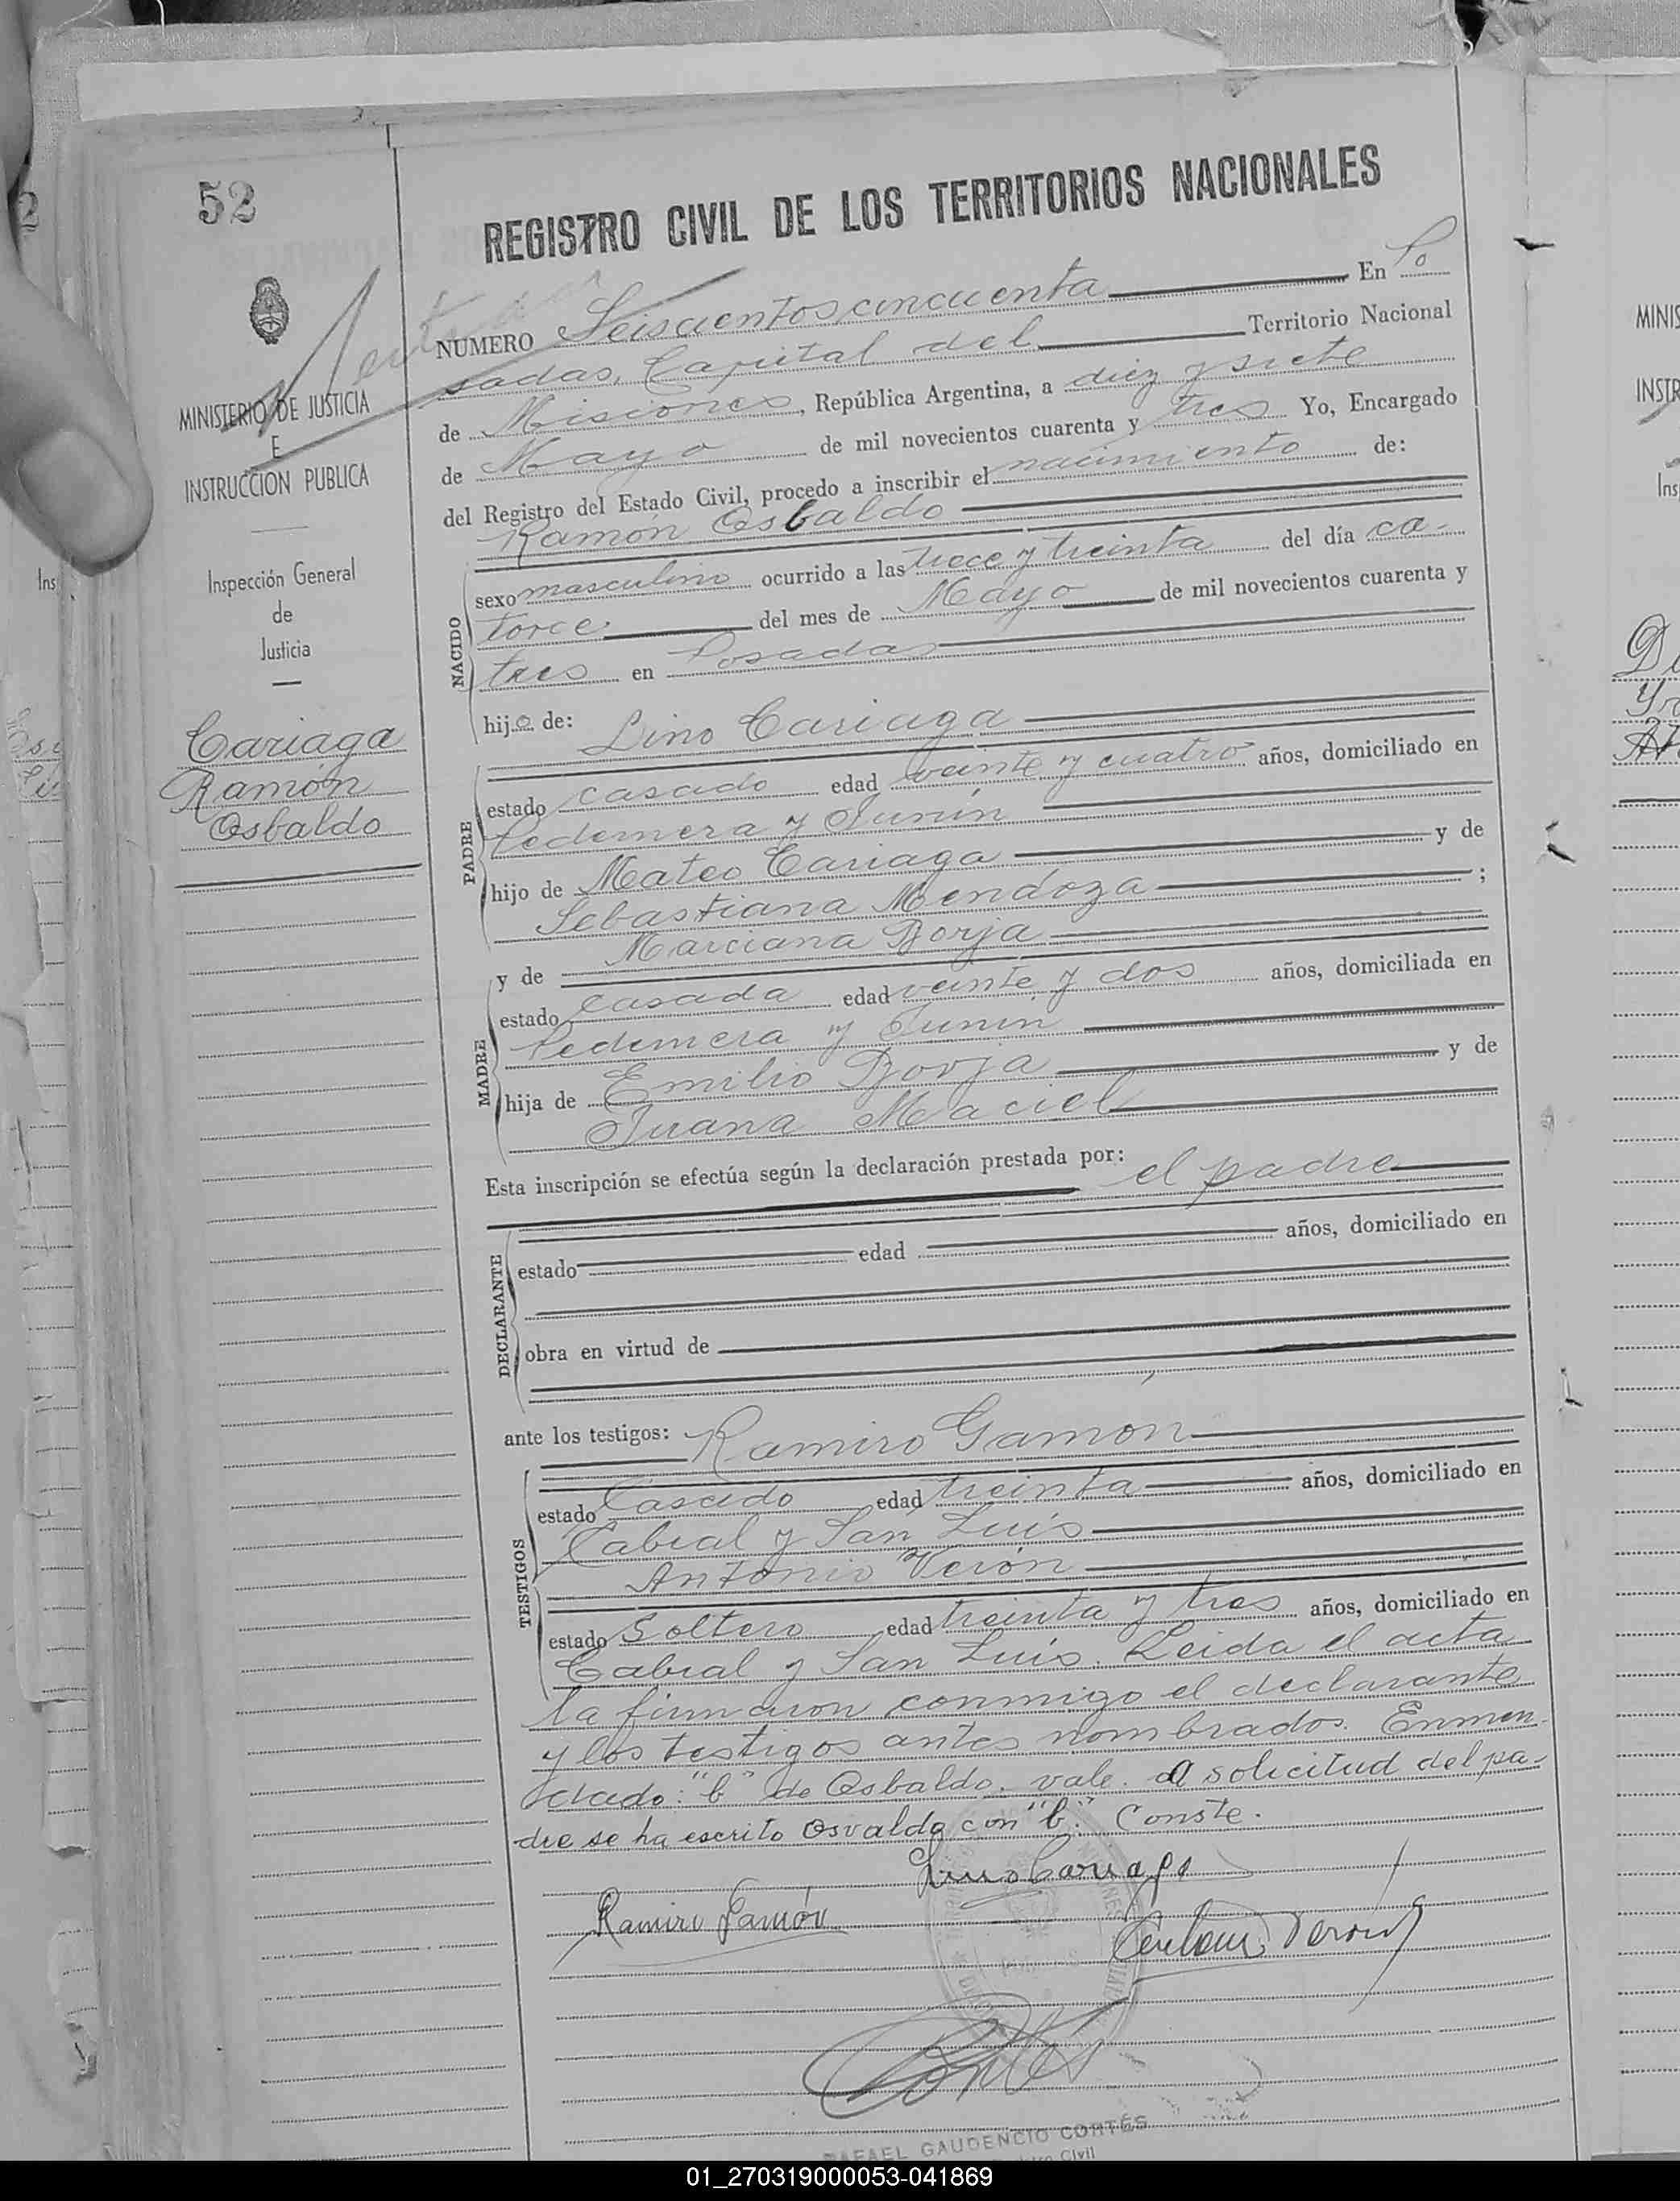 52
REGISTRO CIVIL DE LOS TERRITORIOS NACIONALES
MINISTERIO DE JUSTICIA
E
INSTRUCCION PUBLICA
Inspección General
de
Justicia
Cariaga
Ramón
Osbaldo
NUMERO Seiscientos cincuenta En Po
sadas, Capital del Territorio Nacional
de Misiones, República Argentina, a diez y siete
de Mayo de mil novecientos cuarenta y tres Yo, Encargado
del Registro del Estado Civil, procedo a inscribir el nacimiento de:
Ramón Osbaldo
NACIDO
sexo masculino ocurrido a las trece y treinta del día ca-
torce del mes de Mayo de mil novecientos cuarenta y
tres en Posadas
hijo de: Lino Cariaga
PADRE
estado casado edad veinte y cuatro años, domiciliado en
Pedernera y Junín
hijo de Mateo Cariaga y de
Sebastiana Mendoza ;
y de Marciana Borja
MADRE
estado casada edad veinte y dos años, domiciliada en
Pedernera y Junin
hija de Emilio Borja y de
Juana Maciel
Esta inscripción se efectúa según la declaración prestada por: el padre
DECLARANTE
estado edad años, domiciliado en
obra en virtud de
ante los testigos: Ramiro Gamón
TESTIGOS
estado Casado edad treinta años, domiciliado en
Cabral y San Luis
Antonio Verón
estado Soltero edad treinta y tres años, domiciliado en
Cabral y San Luis. Leida el acta
la firmaron conmigo el declarante
y los testigos antes nombrados. Enmen-
dado: "b" de Osbaldo. vale. A solicitud del pa-
dre se ha escrito Osvaldo con "b". Conste.
Lino Cariaga
Ramiro Gamón
Verón
RAFAEL GAUDENCIO CORTÉS
Civil
MINIS
INSTR
Ins
01_270319000053-041869